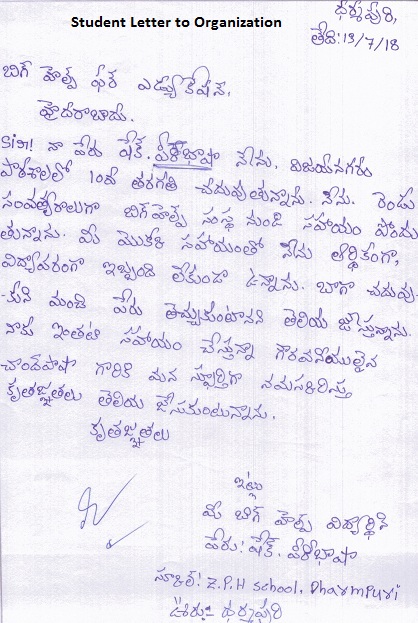 Student Letter to Organization
ధర్మపురి,
తేది: 13/7/18
బిగ్ హెల్ప్ ఫర్ ఎడ్యుకేషన్,
హైదరాబాదు.
Sir! నా పేరు షేక్. పీర్‌భాషా నేను, విజయనగరం
పాఠశాలలో 10వ తరగతి చదువుతున్నాను. నేను రెండు
సంవత్సరాలుగా బిగ్‌హెల్ప్ సంస్థ నుండి సహాయం పొందు
తున్నాను. మీ సహాయంతో నేను ఆర్థికంగా,
విద్యాపరంగా ఇబ్బంది లేకుండా ఉన్నాను. బాగా చదువు-
-కుని మంచి పేరు తెచ్చుకుంటానని తెలియ జేస్తున్నాను.
నాకు ఇంతటి సహాయం చేస్తున్నా గౌరవనీయులైన
చాంద్‌పాషా గారికి మన స్ఫూర్తిగా నమస్కరిస్తు
కృతజ్ఞతలు తెలియ జేసుకుంటున్నాను.
కృతజ్ఞతలు
ఇట్లు
మీ బిగ్ హెల్ప్ విద్యార్థిని
పేరు: షేక్. పీర్‌భాషా
స్కూల్: Z.P.H school, Dharmpuri
ఊరు:- ధర్మపురి